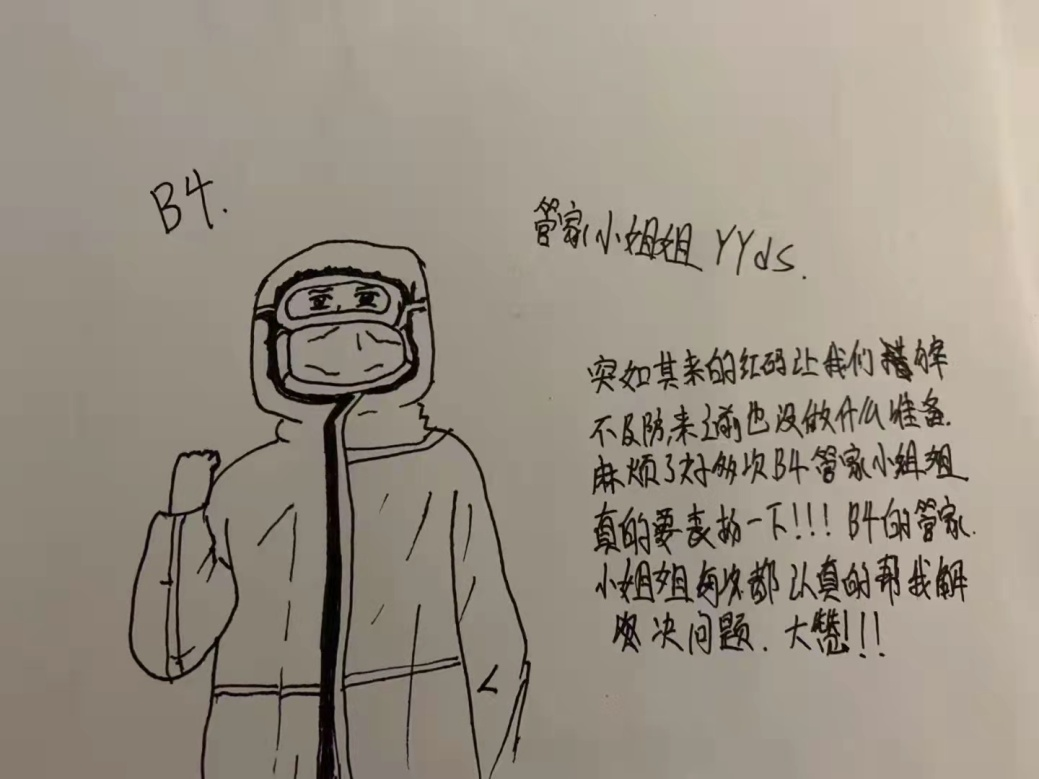 B4.
管家小姐姐 YYds.
突如其来的红码让我们措
不及防,来之前也没做什么准备.
麻烦了好多次B4管家小姐姐
真的要表扬一下!!! B4的管家.
小姐姐每次都认真的帮我解
决问题.大赞!!!